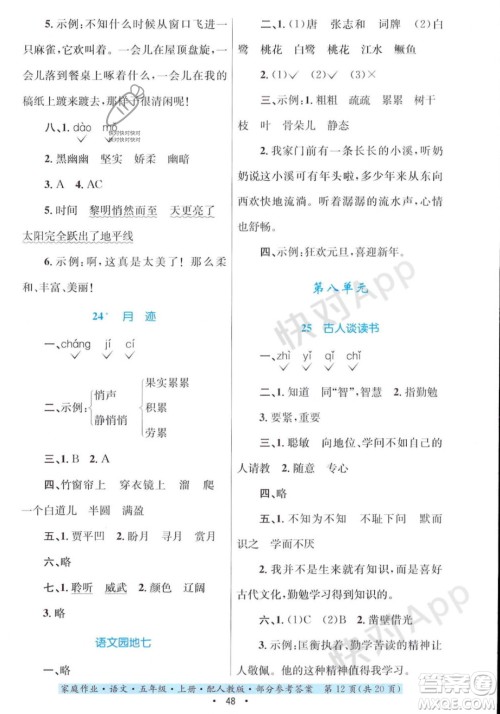 5. 示例:不知什么时候从窗口飞进来
一只麻雀,它一会儿在屋顶盘旋,一会儿
又落到餐桌上啄啄食物,一会儿在我的
稿纸上踱来踱去,那样子很清闲呢!
八、1. dào mǒ
2. 黑幽幽 坚实 娇柔 幽暗
3. A 4. AC
5. 时间 黎明悄然而至 天更亮了
太阳完全跃出了地平线
6. 示例:啊,这真是太美了!多么柔
和、丰富、美丽!
24* 月 迹
一、cháng jǐ cí
二、示例:
悄声
静悄悄
果实累累
积累
劳累
三、1. B 2. A
四、竹窗帘上 穿衣镜上 院子里
一个白道儿 半圆 满盈
五、1. 贾平凹 2. 盼月 寻月 议月
六、略
七、1. 聆听 威武 2. 颜色 辽阔
3. 略
语文园地七
一、1. 唐 张志和 词牌 2. 白
鹭 桃花 白鹭 桃花 江水 鳜鱼
2. (1)✓ (3)✓
三、示例:1. 粗粗 疏疏 累累 树干
枝 叶 骨朵儿 静态
2. 我家门前有一条长长的小溪,听奶
奶说这溪可有年头啦,多少年来它一直向
西欢快地流淌。听着潺潺的流水声,我的心
也舒畅。
四、示例:狂欢元旦,喜迎新年。
第八单元
25 古人谈读书
一、zhì yǐ qǐ chí
二、1. 知道 同“智”,智慧 2. 指勤勉
3. 要紧,重要
三、1. 聪敏 向地位、学问不如自己的
人请教 2. 随意 专心
四、略
五、1. 不知为不知 不耻下问 默而
识之 学而不厌 诲人不倦
2. 我并不是生来就有知识的,喜好
古代文化,勤勉学习得来的知识。
六、1. (1)C (2)B 2. 凿壁借光
3. 示例:匡衡勤奋学习的精神让人
敬佩。他的这种精神值得我学习。
家庭作业·语文·五年级·上册·配人教版·部分参考答案 第12页(共20页)
48
快对App
快对App
快对App